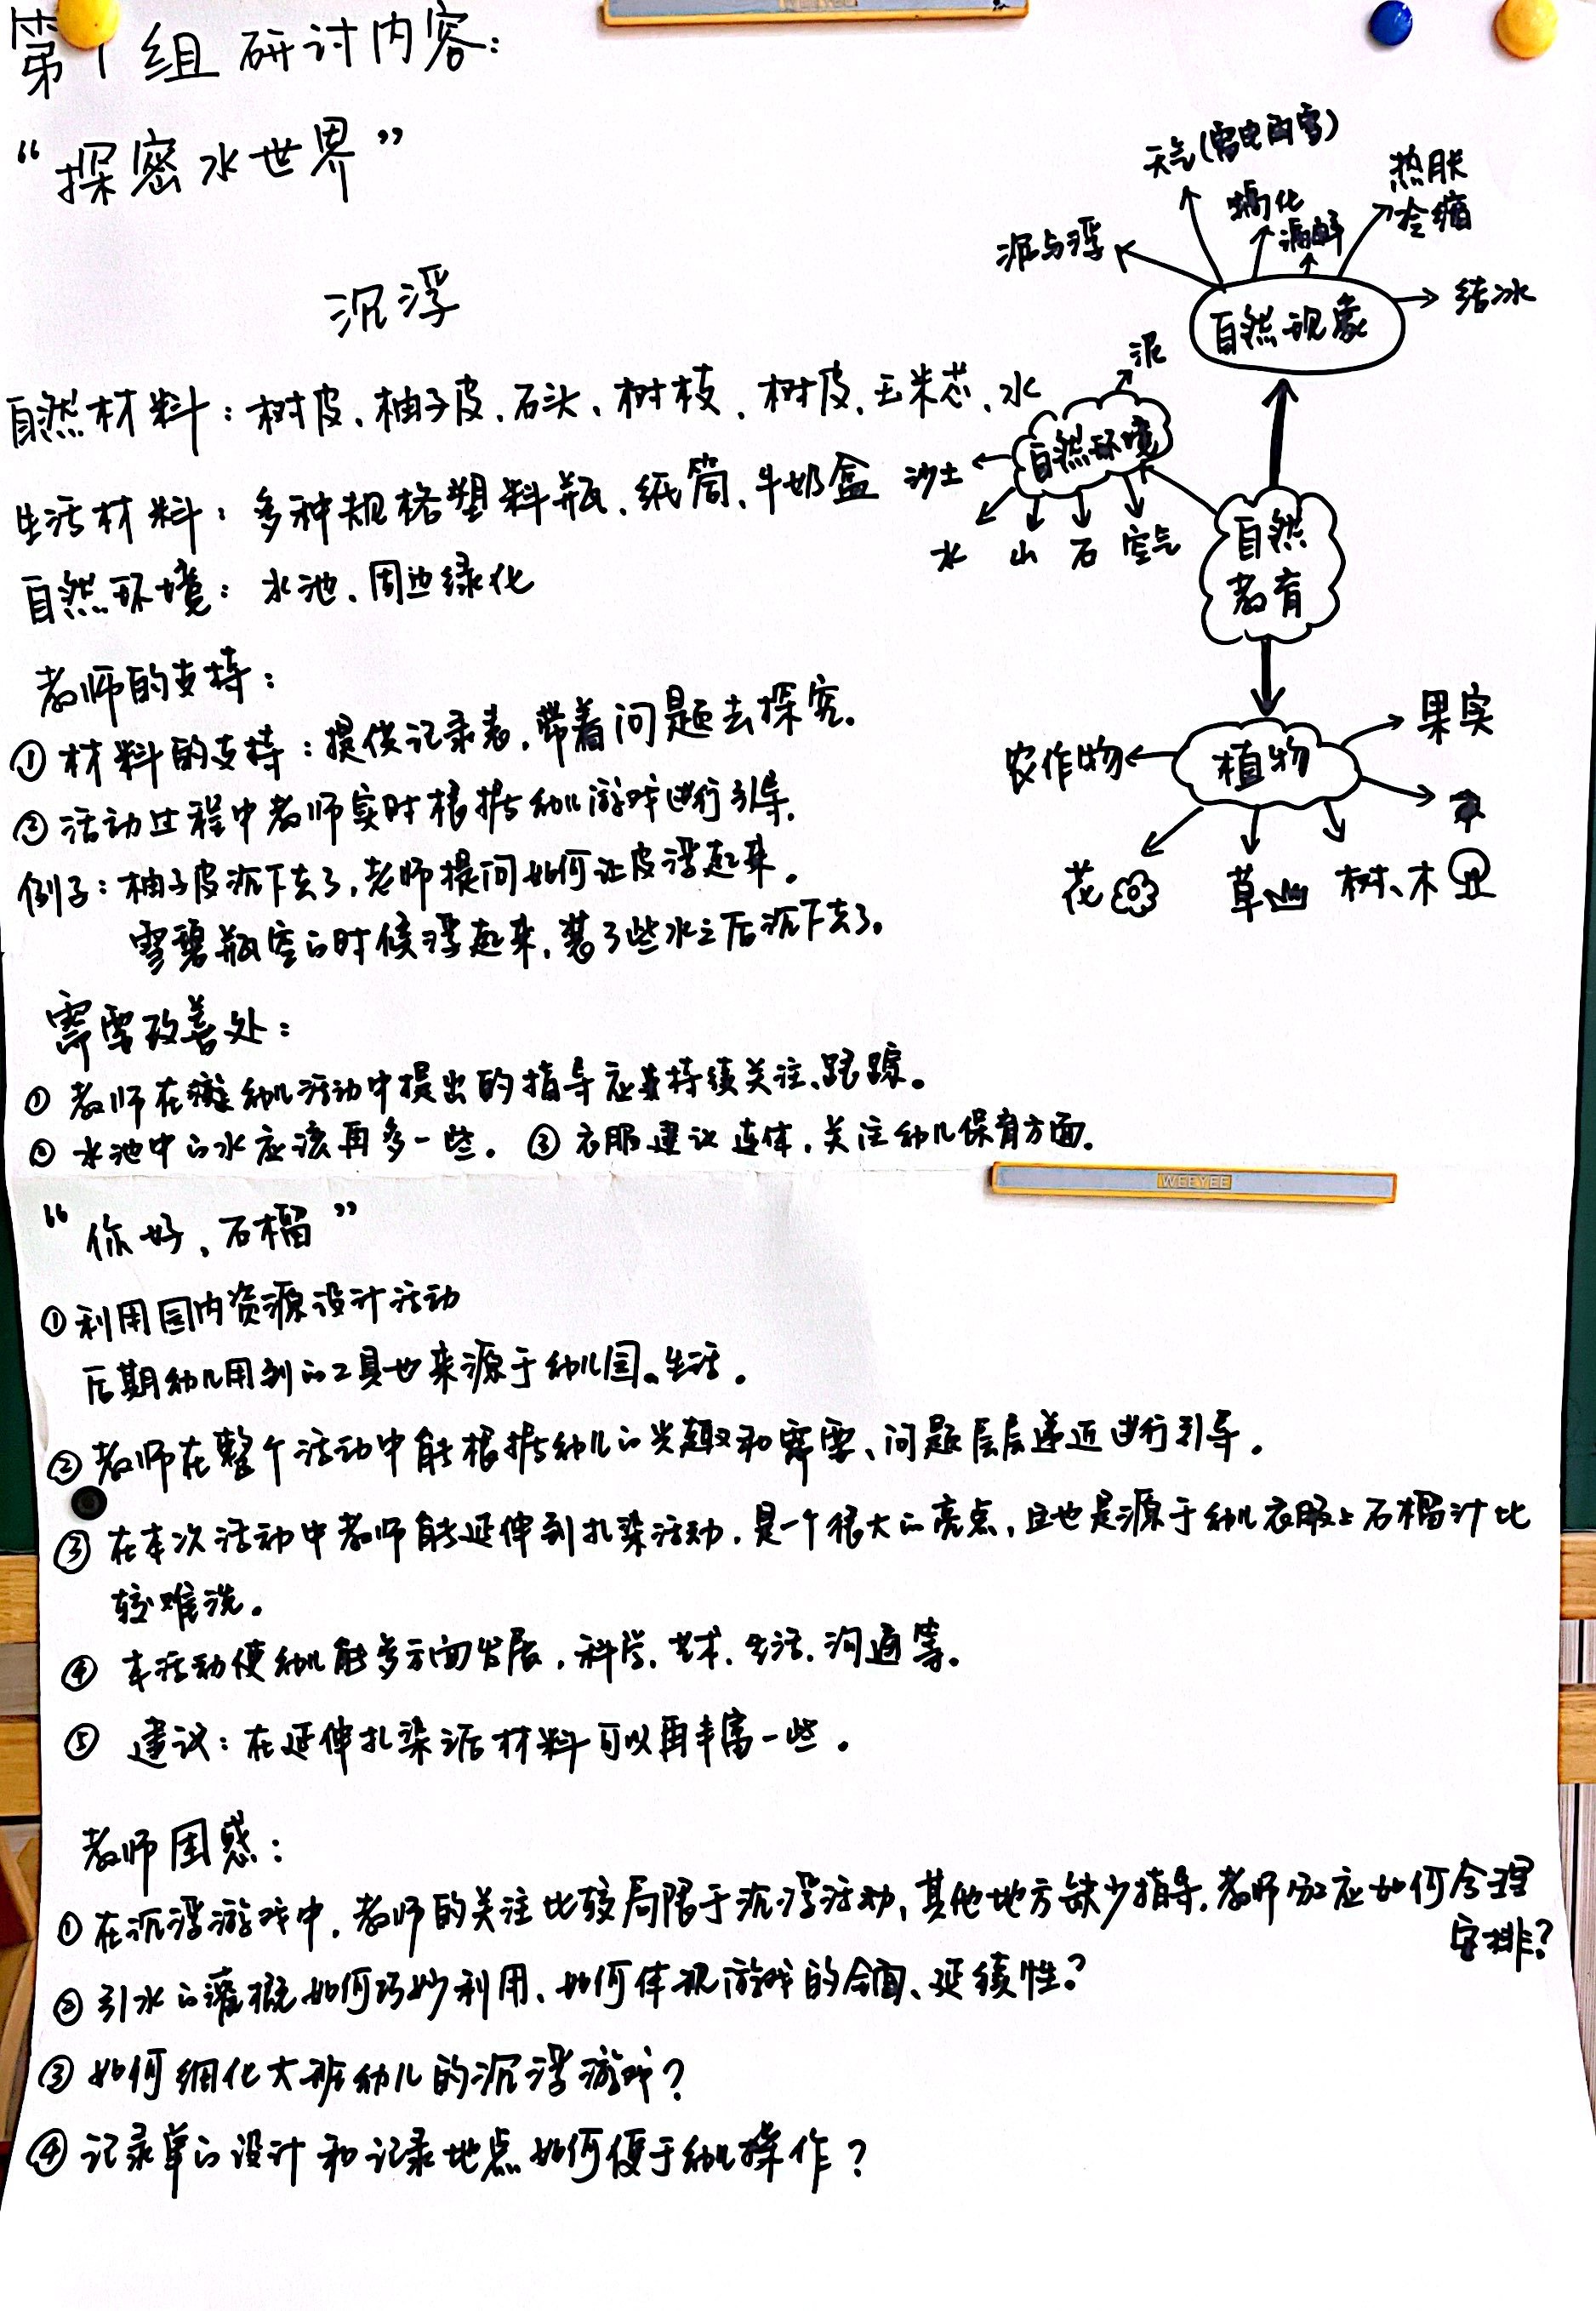 第1组研讨内容：
“探密水世界”
沉浮
自然材料：树皮、柚子皮、石头、树枝、树皮、玉米芯、水
生活材料：多种规格塑料瓶、纸筒、牛奶盒
自然环境：水池、周边绿化
教师的支持：
①材料的支持：提供记录表，带着问题去探究。
②活动过程中教师实时根据幼儿游戏进行引导。
例子：柚子皮沉下去了，老师提问如何让皮浮起来。
雪碧瓶空的时候浮起来，装了些水之后沉下去了。
需要改善处：
①教师在幼儿活动中提出的指导应持续关注、跟踪。
②水池中的水应该再多一些。③衣服建议连体，关注幼儿保育方面。
天气(雷电雨雪)
热胀
冷缩
溶解
沉与浮
结冰
自然现象
泥
自然环境
沙土
水 山 石 空气
自然
教育
植物
果实
农作物
花 草 树、木
WEEYEE
“你好，石榴”
①利用园内资源设计活动
后期幼儿用到的工具也来源于幼儿园、生活。
②教师在整个活动中能根据幼儿的兴趣和需要、问题层层递近进行引导。
③在本次活动中教师能延伸到扎染活动，是一个很大的亮点，且也是源于幼儿衣服上石榴汁比
较难洗。
④本活动使幼儿能多方面发展，科学、艺术、生活、沟通等。
⑤建议：在延伸扎染活材料可以再丰富一些。
教师困惑：
①在沉浮游戏中，教师的关注比较局限于沉浮活动，其他地方缺少指导，教师分工应如何合理
安排？
②引水的灌概如何巧妙利用、如何体现游戏的全面、延续性？
③如何细化大班幼儿的沉浮游戏？
④记录单的设计和记录地点如何便于幼儿操作？